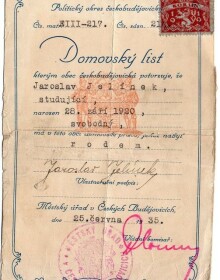 Politický okres českobudějovický
XIII-217.
Domovský list
kterým obec českobudějovická potvrzuje, že
Jaroslav Jelínek,
studující,
narozen 28. září 1920,
svobodný,
má v této obci domovské právo
rodem.
Jaroslav Jelínek
Vlastnoruční podpis.
Městský úřad v Českých Budějovicích,
dne 25. června 35.